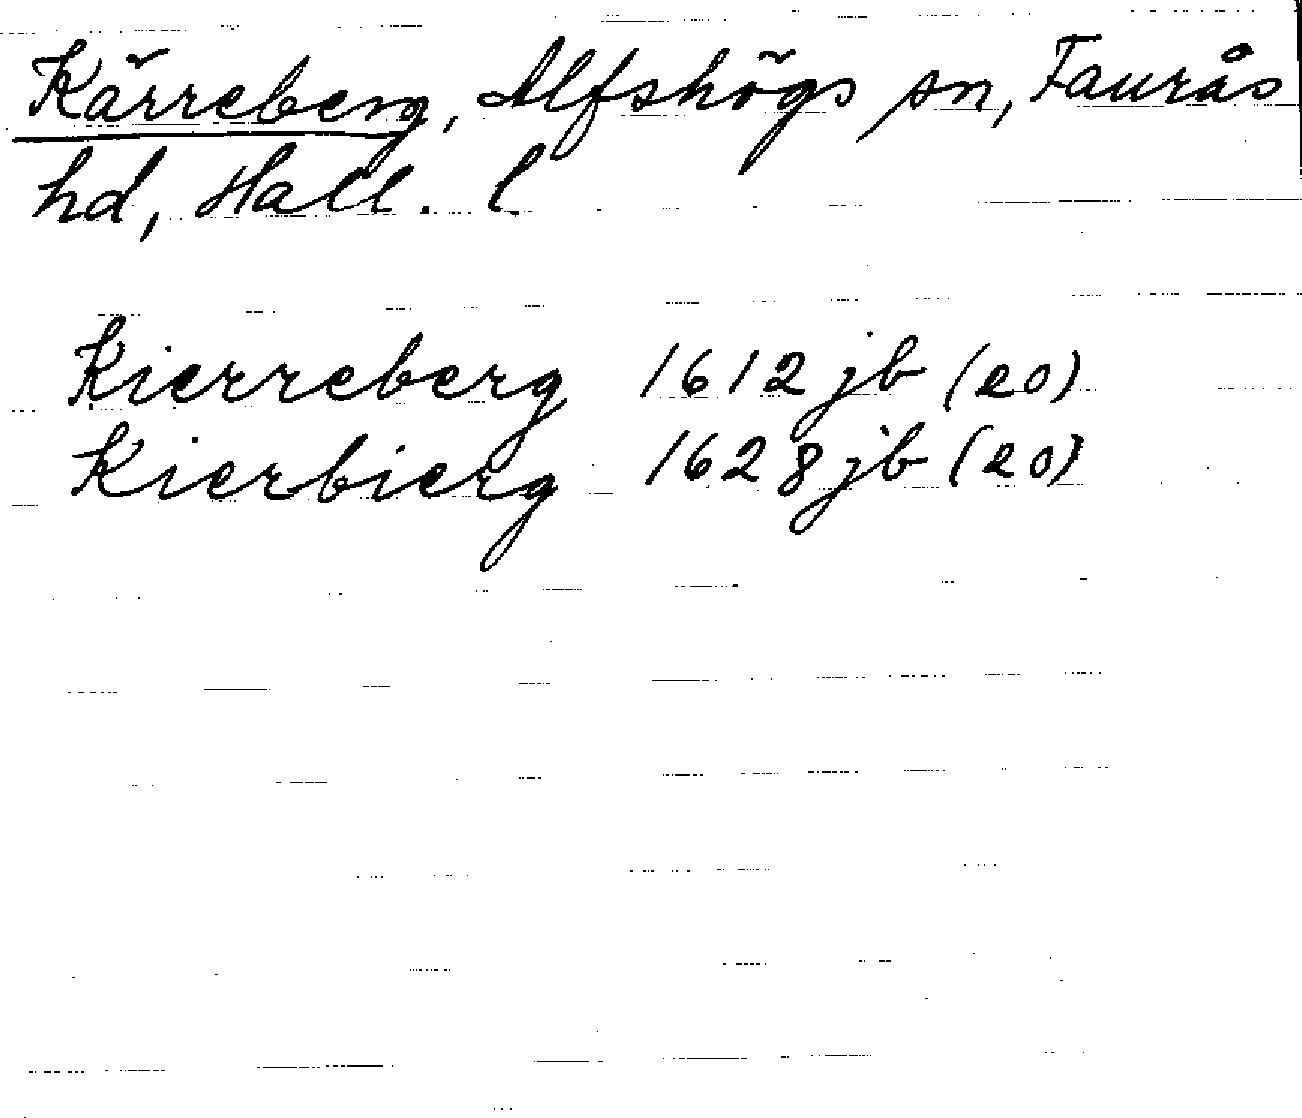 Kärreberg, Alfshögs sn, Faurås
hd, Hall. l
Kierreberg 1612 jb (20)
Kierbierg 1628 jb (20)